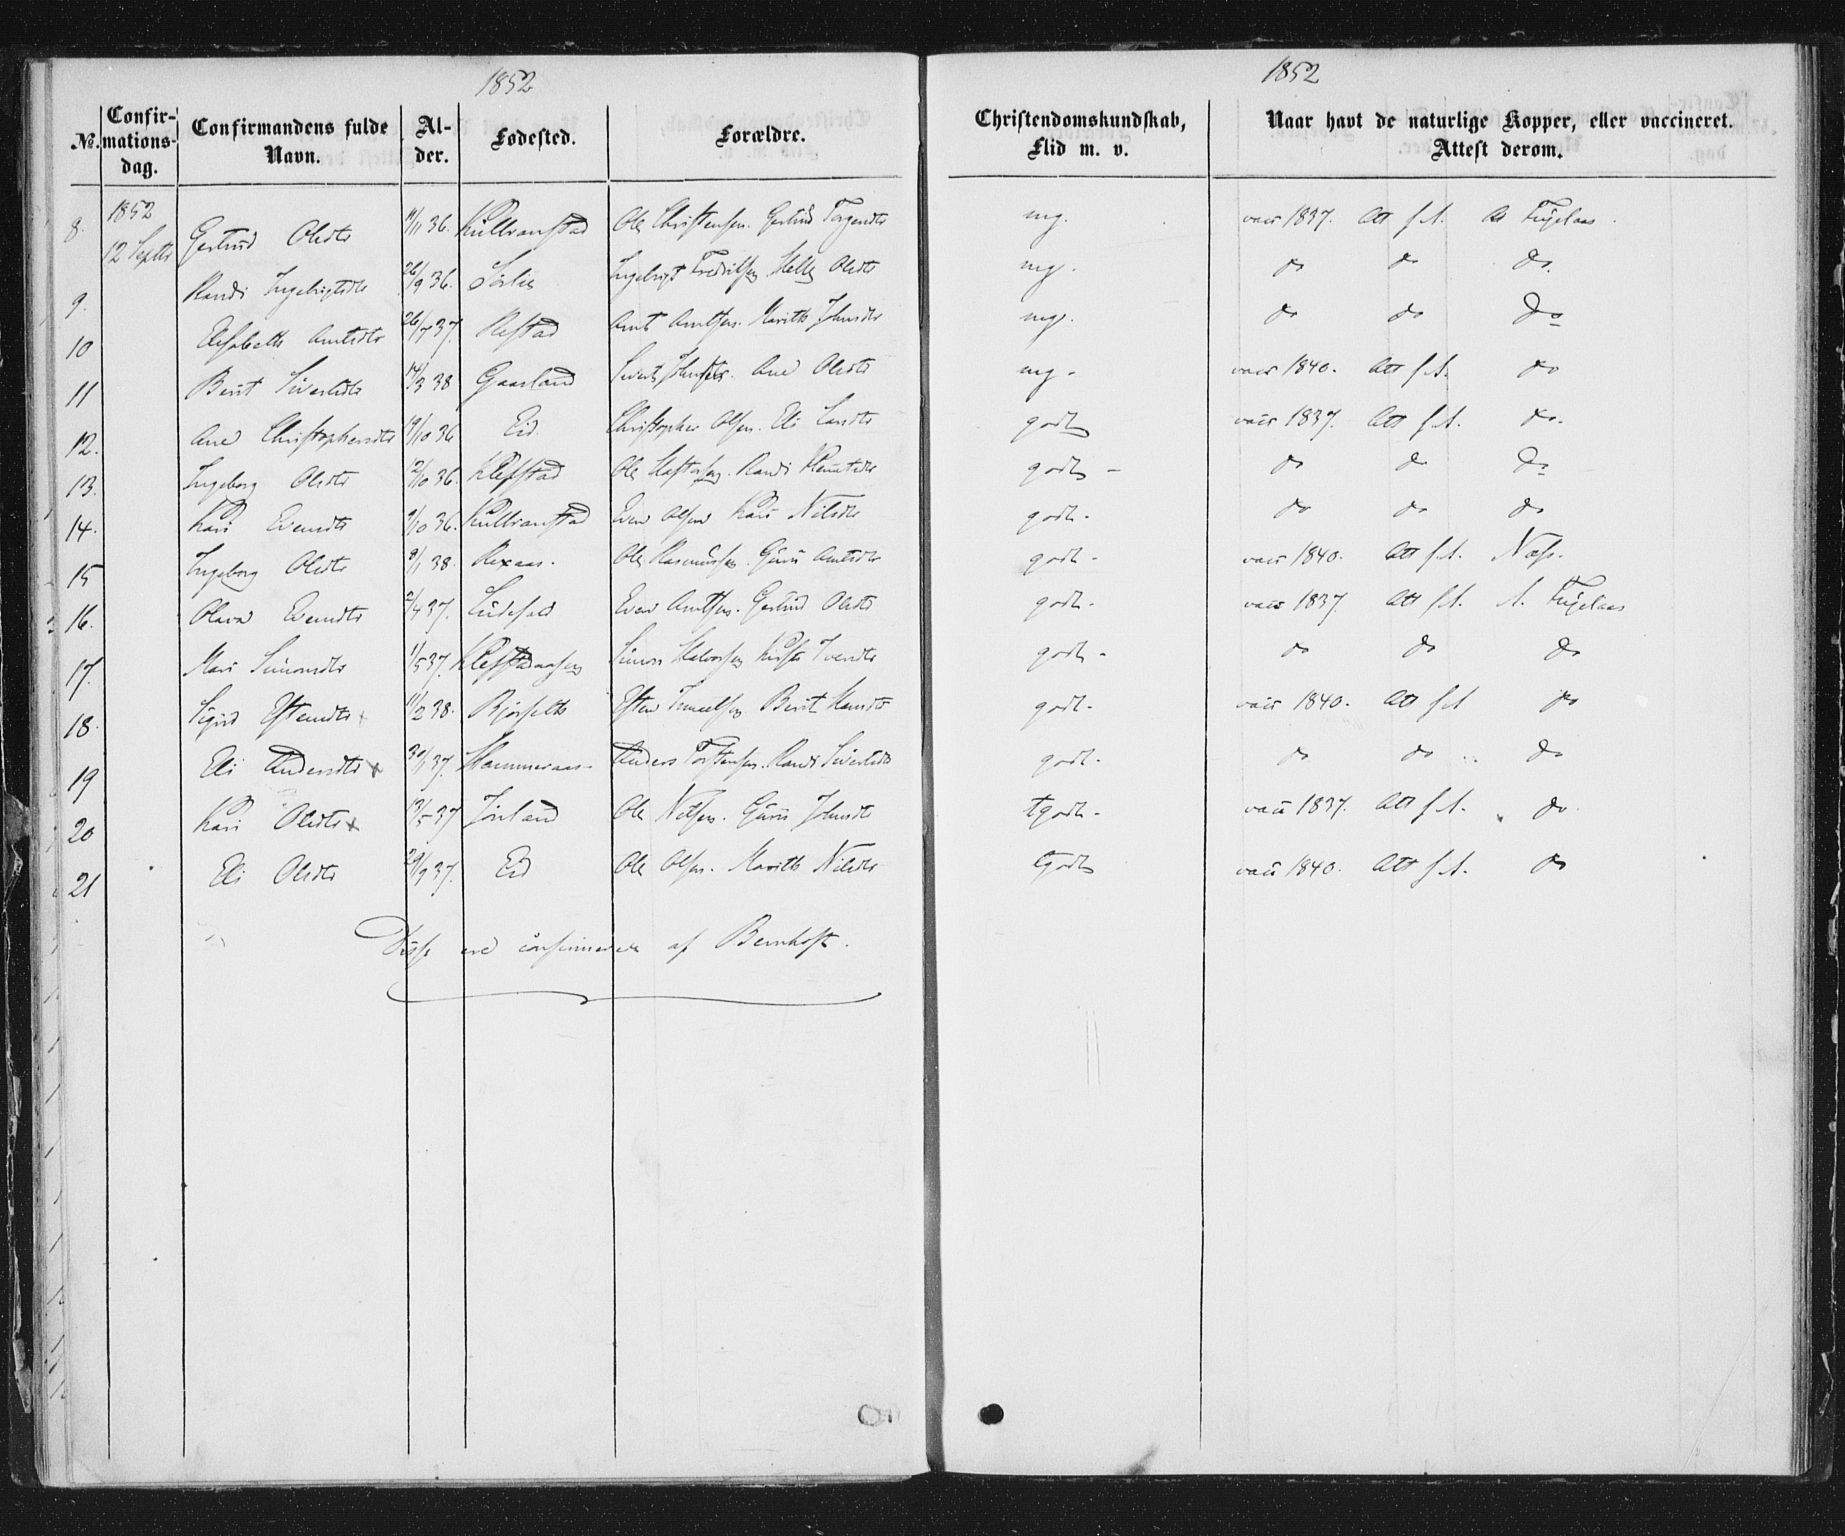 1852
1852
No. Confirmationsdag. Confirmandens fulde Navn. Alder. Fødested. Forældre. Christendomskundskab, Flid m. v. Naar havt de naturlige Kopper, eller vaccineret. Attest derom.
1852
8. 12 Septbr Gertrud Olsdtr 36. Ole Christensen. Gertrud mg. vacc 1837. Att f. A. Fuglaas.
9. Randi Ingebrigtsdtr 26/9 36. Sørlie Ingebrigt Olsdtr mg. do do do.
10 Elisabeth Arntsdtr 37. Refstad Arnt Arntsen. Marith Johnsdtr mg. do do do
11 Berit Sivertsdtr 14/3 38 Gaasland Sivert Ane Olsdtr mg. vacc 1840. Att f. A. do
12. Ane Christophersdtr 19/10 36 Eid. Christopher Olsen. Eli Larsdtr godt vacc 1837. Att f. A. do.
13. Ingeborg Olsdtr 12/10 36. Klefstad Ole Randi godt - do do do
14. Kari Evensdtr 9/10 36. Even Olsen Kari Nilsdtr godt. do do do
15 Ingeborg Olsdtr 9/1 38. Rexaas. Ole Rasmussen. Guru Arntsdtr godt - vacc 1840. Att f. A. Næss.
16. Olava Evensdtr 2/4 37. Even Arntsen. Gertrud Olsdtr godt. vacc 1837 Att f. A. A. Fuglaas
17. Mari Simonsdtr 1/5 37. Klefstadaasen Simon Halvorsen Iversdtr godt - do do do
18. Sigrid Estensdtr 11/2 38. Bjørseth Esten Berit Hansdtr godt. vacc 1840. Att f A do
19 Eli Andersdtr x 30/1 37. Hammeraas Anders Torstensen. Randi Sivertsdtr godt. do do do
20 Kari Olsdtr x 13/5 37 Jørland Ole Nilsen. Guru Johnsdtr tgodt - vacc 1837. Att f. A. do
21 Eli Olsdtr 29/9 37. Eid Ole Olsen. Marith Nilsdtr tgodt vacc 1840. Att f. A. do
Disse ere confirmerede af Bernhoft.